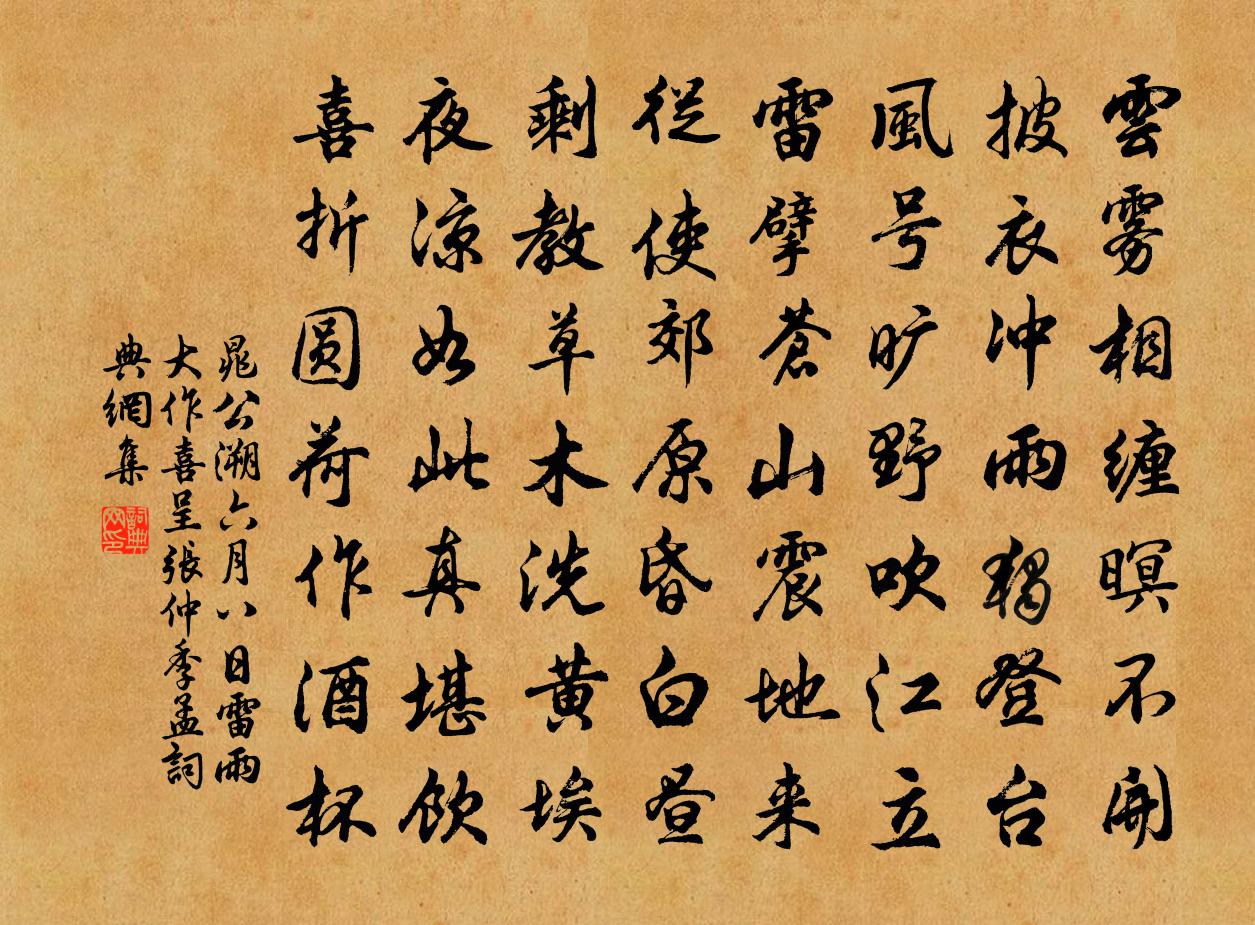 雲雾相缠暝不開
披衣冲雨獨登台
風号旷野吹江立
雷擘苍山震地来
從使郊原昏白昼
剩教草木洗黄埃
夜凉如此真堪飲
喜折圆荷作酒杯
晁公溯六月八日雷雨
大作喜呈張仲季孟詞
典網集